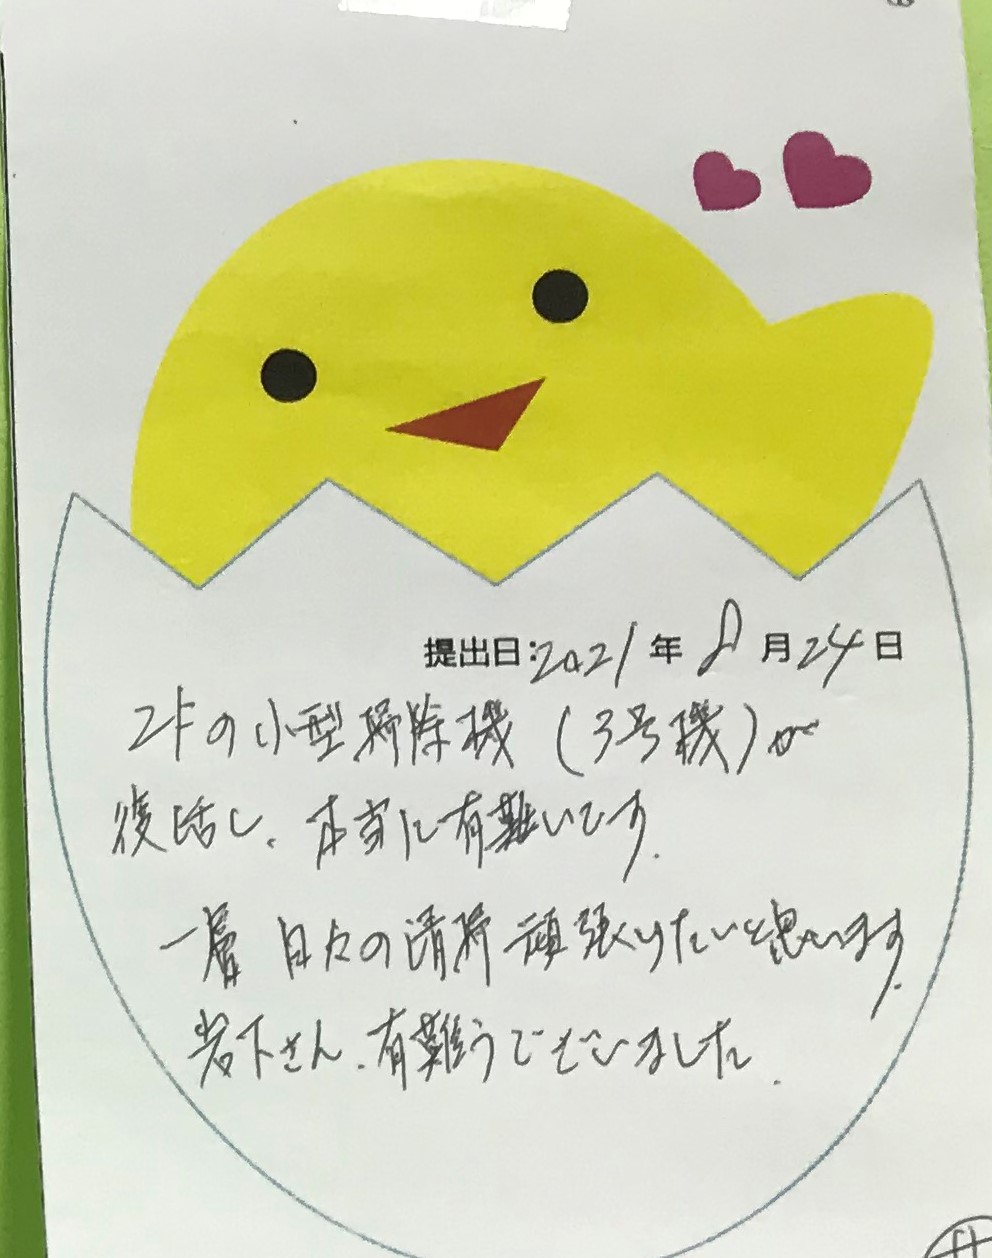 提出日:2021年8月24日
2Fの小型掃除機(3号機)が
復活し、本当に有難いです。
一層日々の清掃頑張りたいと思います。
岩下さん、有難うございました。